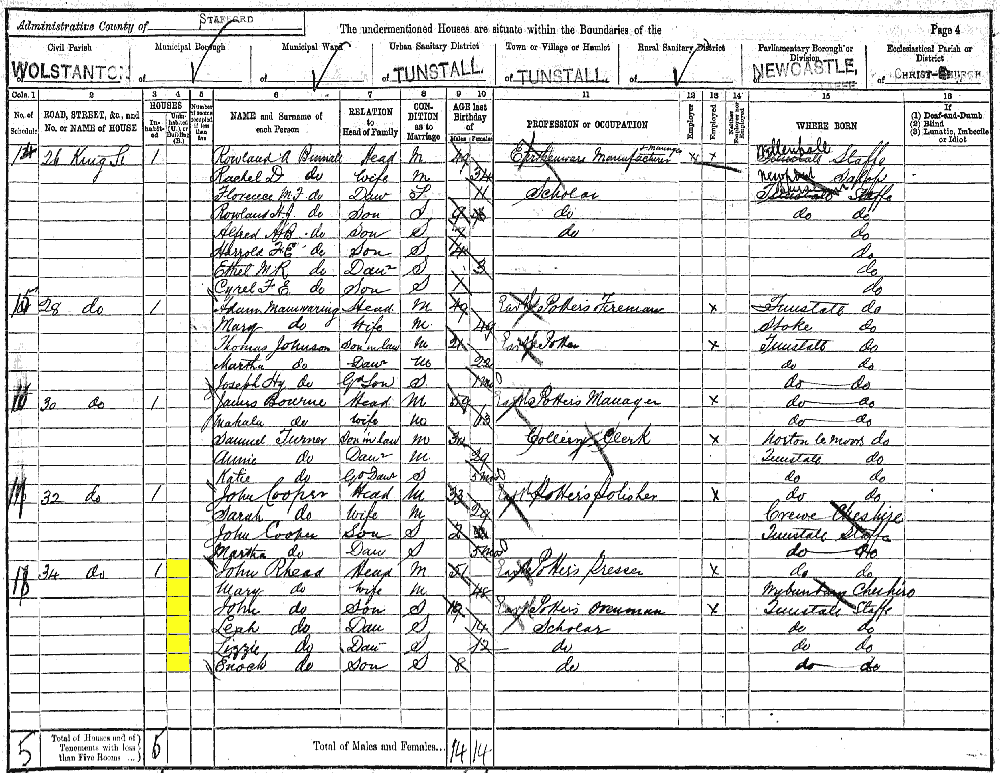 Administrative County of STAFFORD The undermentioned Houses are situate within the Boundaries of the Page 4
Civil Parish Municipal Borough Municipal Ward Urban Sanitary District Town or Village or Hamlet Rural Sanitary District Parliamentary Borough or Division Ecclesiastical Parish or District
of WOLSTANTON of of of TUNSTALL. of TUNSTALL. of of NEWCASTLE, of CHRIST-CHURCH
Cols. 1 2 3 4 5 6 7 8 9 10 11 12 13 14 15 16
No. of Schedule ROAD, STREET, &c., and No. or NAME of HOUSE HOUSES Inhabited Uninhabited (U.) or Building (B.) Number of rooms occupied if less than five NAME and Surname of each Person RELATION to Head of Family CONDITION as to Marriage AGE last Birthday of Males Females PROFESSION or OCCUPATION Employer Employed Neither Employer nor Employed WHERE BORN If (1) Deaf-and-Dumb (2) Blind (3) Lunatic, Imbecile or Idiot
14 26 King St 1 Rowland A Head M 49 Earthenware Manufacturer Manager x x Staffs
Rachel D do Wife M 34 Newport Salop
Florence M.F. do Daw S 11 Scholar Staffs
Rowland H.J. do Son S 9 do do do
Alfred do Son S do do
Harrold F E do Son S do
Ethel M R do Dawr S 3 do
Cyrel F E do Son S 1 do
15 28 do 1 Adam Mainwaring Head M 49 Potters Fireman x Tunstall do
Mary do Wife M 49 Stoke do
Thomas Johnson Son in law M 21 Potter x Tunstall do
Martha do Dawr M 22 do do
Joseph Hy do Gd Son S 1 mo do do
16 30 do 1 James Bourne Head M 59 Potters Manager x do do
do Wife do do
Samuel Turner Son in law M Colliery Clerk x Norton le Moors do
Annie do Dawr M 29 Tunstall do
Katie do Gd Daw S 5 mos do do
17 32 do 1 John Cooper Head M 33 Potter's Polisher x do do
Sarah do Wife M 29 Crewe Cheshire
John Cooper Son S 2 Tunstall Staffs
Martha do Daw S 5 mos do do
18 34 do 1 John Rhead Head M 51 Potter's Presser x do do
Mary do Wife M 48 Wybunbury Cheshire
John do Son S 19 Potters Ovenman x Tunstall Staffs
Leah do Dau S 14 Scholar do do
Lizzie do Daw S 12 do do do
Enoch do Son S 8 do do do
5 Total of Houses and of Tenements with less than Five Rooms ... 5 Total of Males and Females... 14 14